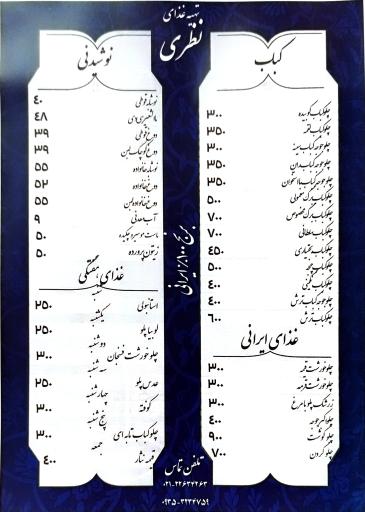 تهیه غذای
نظری
کباب
چلوکباب کوبیده ۳۰۰
چلوکباب لقمه ۳۵۰
چلوجوجه کباب سینه ۳۰۰
چلوجوجه کباب ران ۳۵۰
چلوجوجه کباب با استخوان ۳۵۰
چلوکباب برگ معمولی ۵۰۰
چلوکباب برگ مخصوص ۷۰۰
چلوکباب سلطانی ۷۰۰
چلوکباب بختیاری ۴۵۰
چلوکباب ۵۰۰
چلوکباب ۴۰۰
چلوجوجه کباب ترش ۴۰۰
چلوکباب ترش ۶۰۰
غذای ایرانی
چلوخورشت قیمه ۳۰۰
چلوخورشت قرمه ۳۰۰
زرشک پلو با مرغ ۳۰۰
چلو اکبر جوجه ۴۰۰
چلوگوشت ۹۰۰
چلوگردن ۷۰۰
نوشیدنی
نوشابه قوطی ۴۰
ماءالشعیر ۴۸
دوغ قوطی ۳۹
دوغ کوچک ۳۹
نوشابه خانواده ۵۵
دوغ خانواده ۵۲
دوغ خانواده ۵۵
آب معدنی ۹
ماست موسیر چکیده ۵۰
زیتون پرورده ۵۰
غذای هفتگی
شنبه
استانبولی ۲۵۰
یکشنبه
لوبیا پلو ۲۵۰
دوشنبه
چلوخورشت فسنجان ۳۰۰
سه شنبه
عدس پلو ۲۵۰
چهارشنبه
کوفته ۳۰۰
پنج شنبه
چلوکباب تابه ای ۳۰۰
جمعه
قیمه نثار ۴۰۰
برنج ۱۰۰٪ ایرانی
تلفن تماس
۰۲۱-۲۲۶۳۴۲۶۳
۰۹۳۵-۳۲۳۴۷۵۹